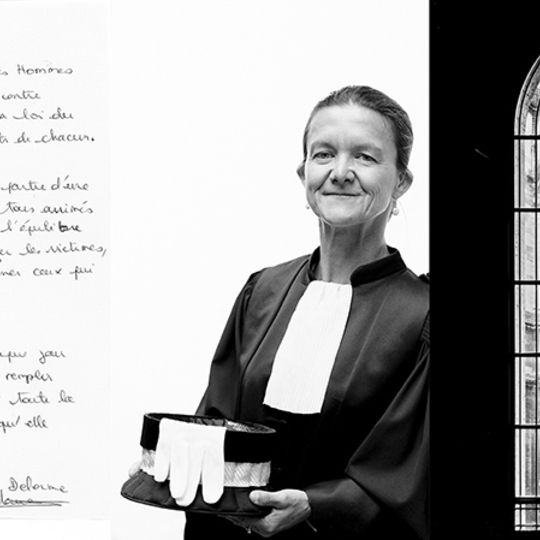 es Hommes
contre
a loi du
ts de chacun.
partie d'une
tous animés
l'équilibre
er les victimes,
ner ceux qui
que jour
remplir
toute la
qu'elle
Delorme